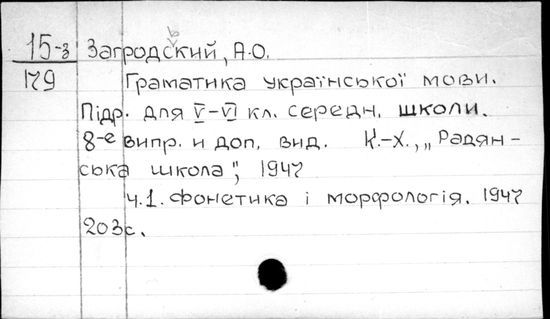 15-з Загродський, А.О.
179 Граматика української мови.
Підр. для V-VI кл. середн. школи.
8-е випр. и доп. вид. К.-Х., „Радян-
ська школа", 1947
ч.1. Фонетика і морфологія. 1947
203с.